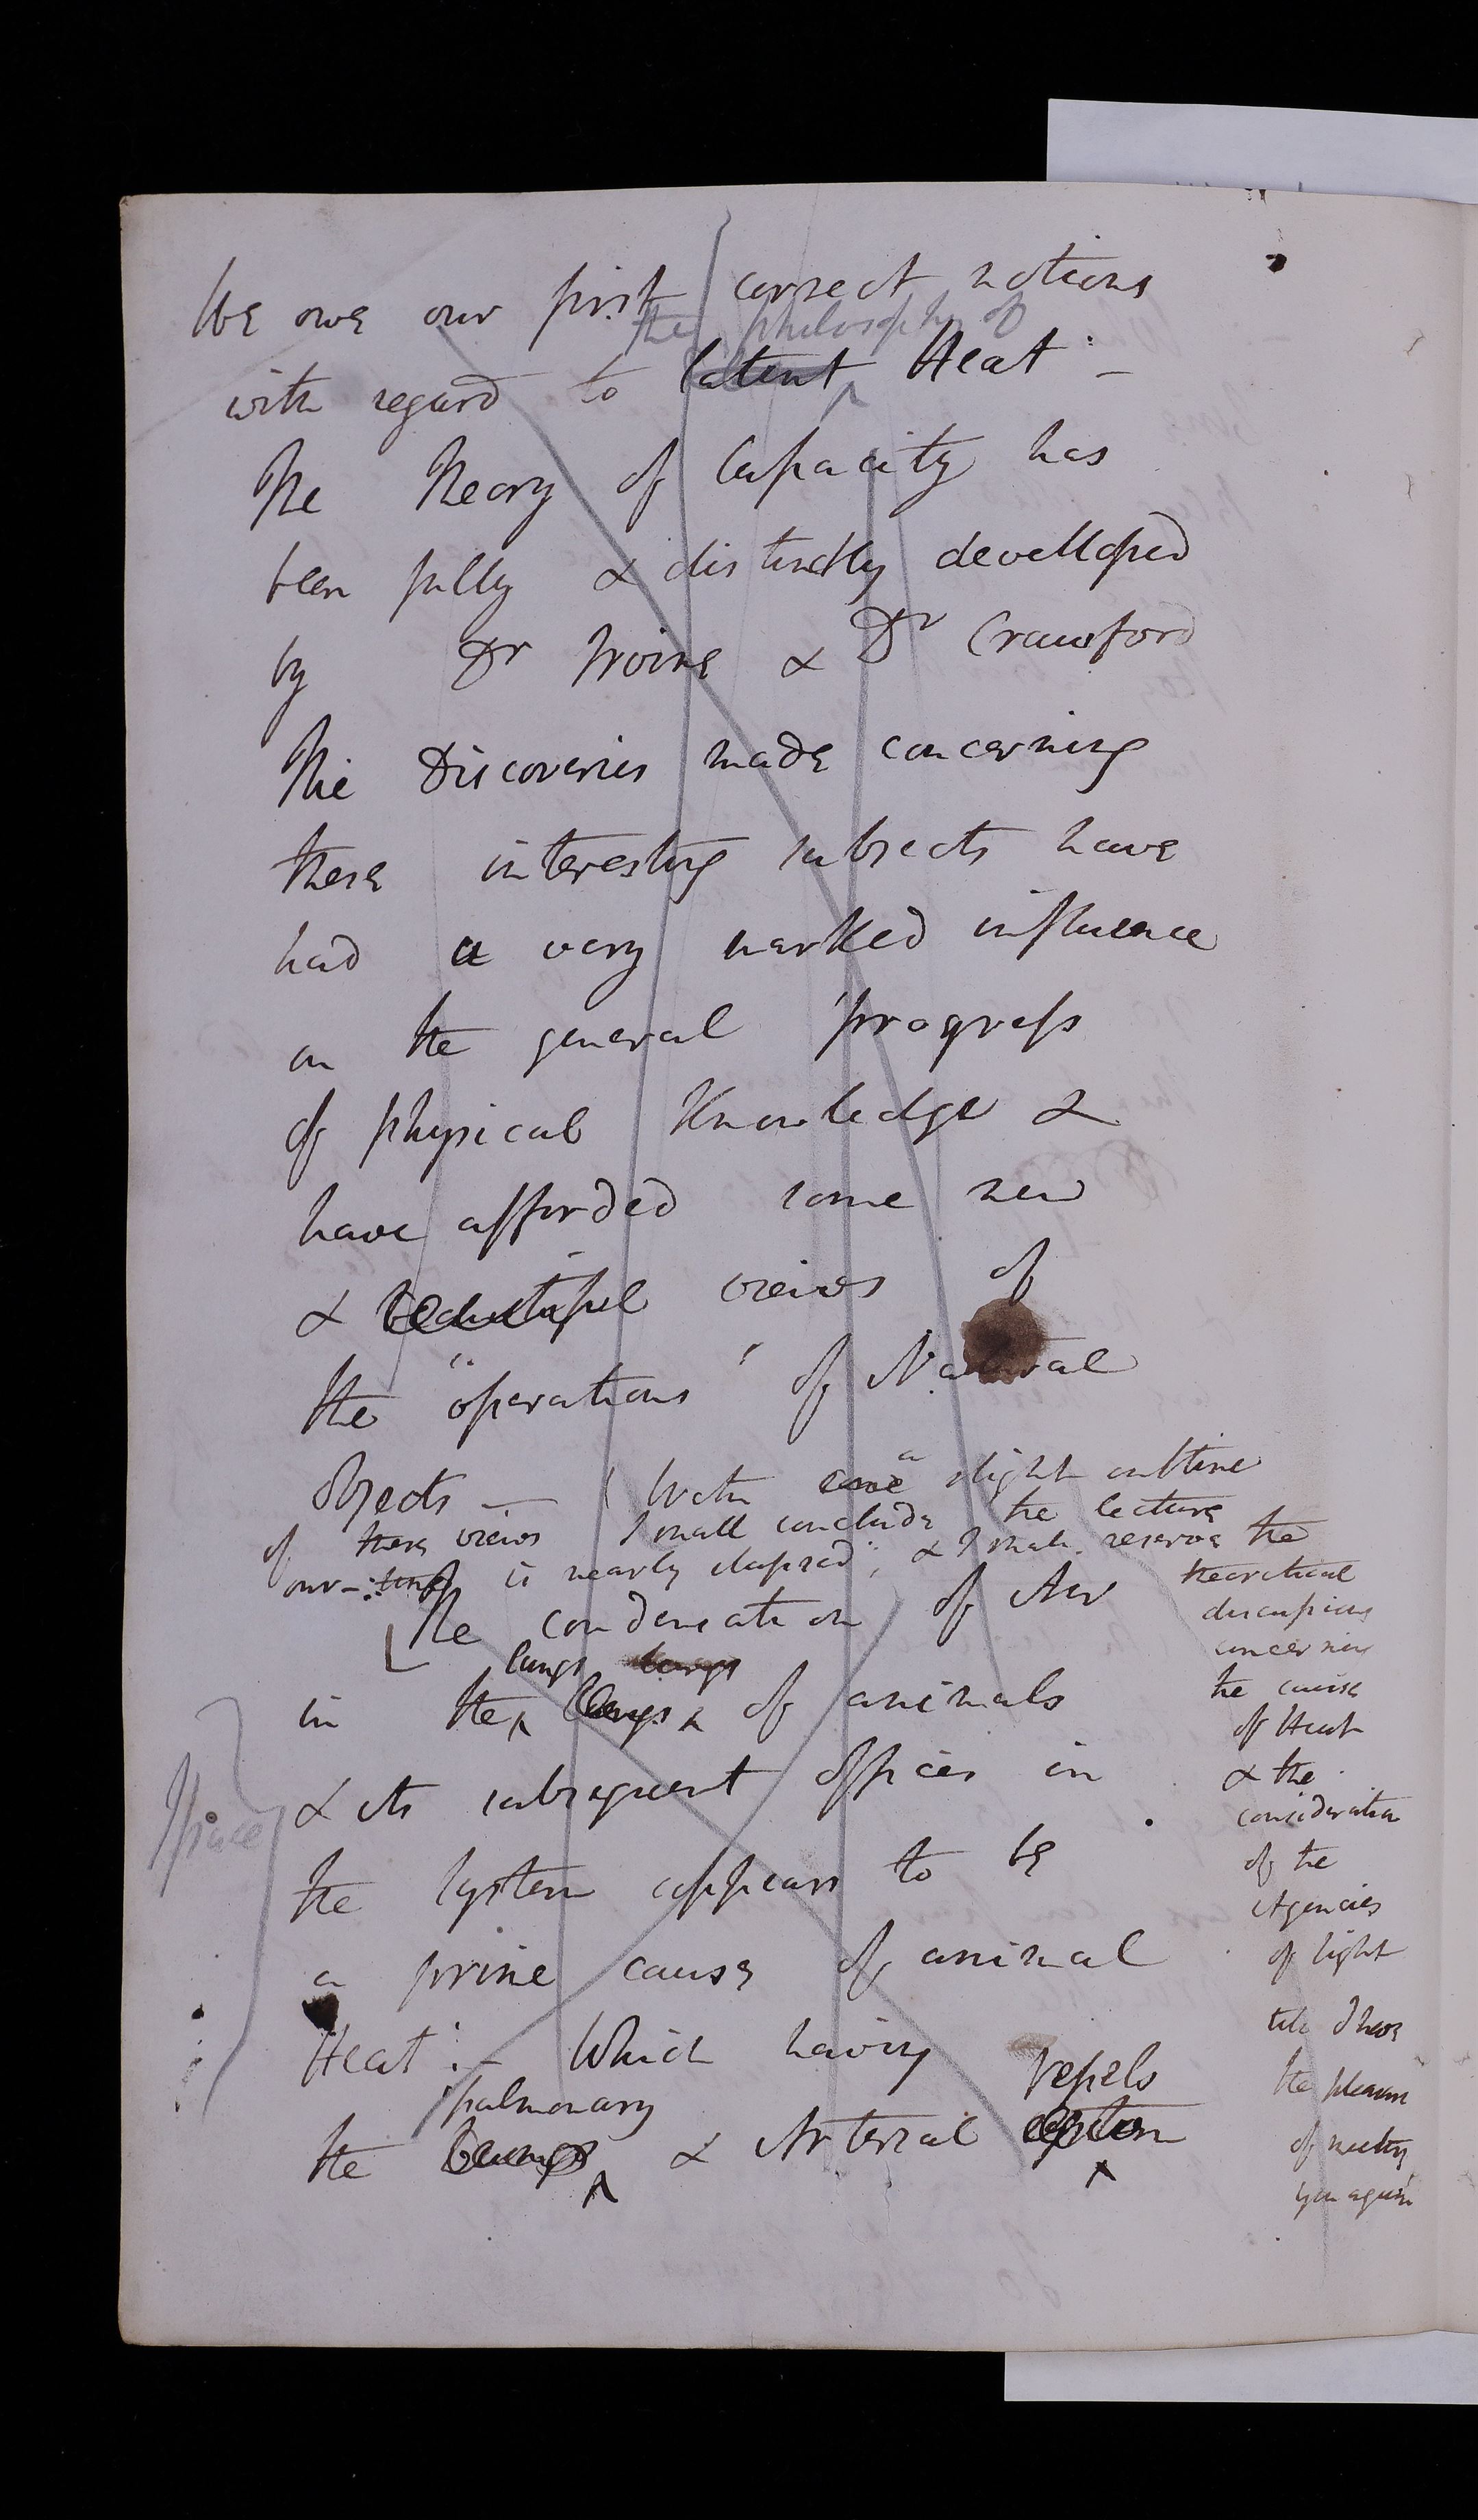 We owe our first correct notions
the philosophy of
with regard to latent Heat -
The Theory of Capacity has
been fully & distinctly develloped
by Dr Irvine & Dr Crawford
The Discoveries made concerning
these interesting subjects have
had a very marked influence
on the general progress
of physical Knowledge &
have afforded some new
& beautiful views of
the "operations" of Natural
Objects - With a slight outline
of these views I shall conclude the lecture
our time is nearly elapsed; & I shall reserve the
theoretical
discussions
concerning
the cause
of Heat
& the
consideration
of the
Agencies
of light
till I have
the pleasure
of meeting
you again
The condensation of Air
lungs lungs
in the lungs of animals
& its subsequent offices in
the System appears to be
a prime cause of animal
Heat :- Which having
pulmonary vessels
the & Arterial system